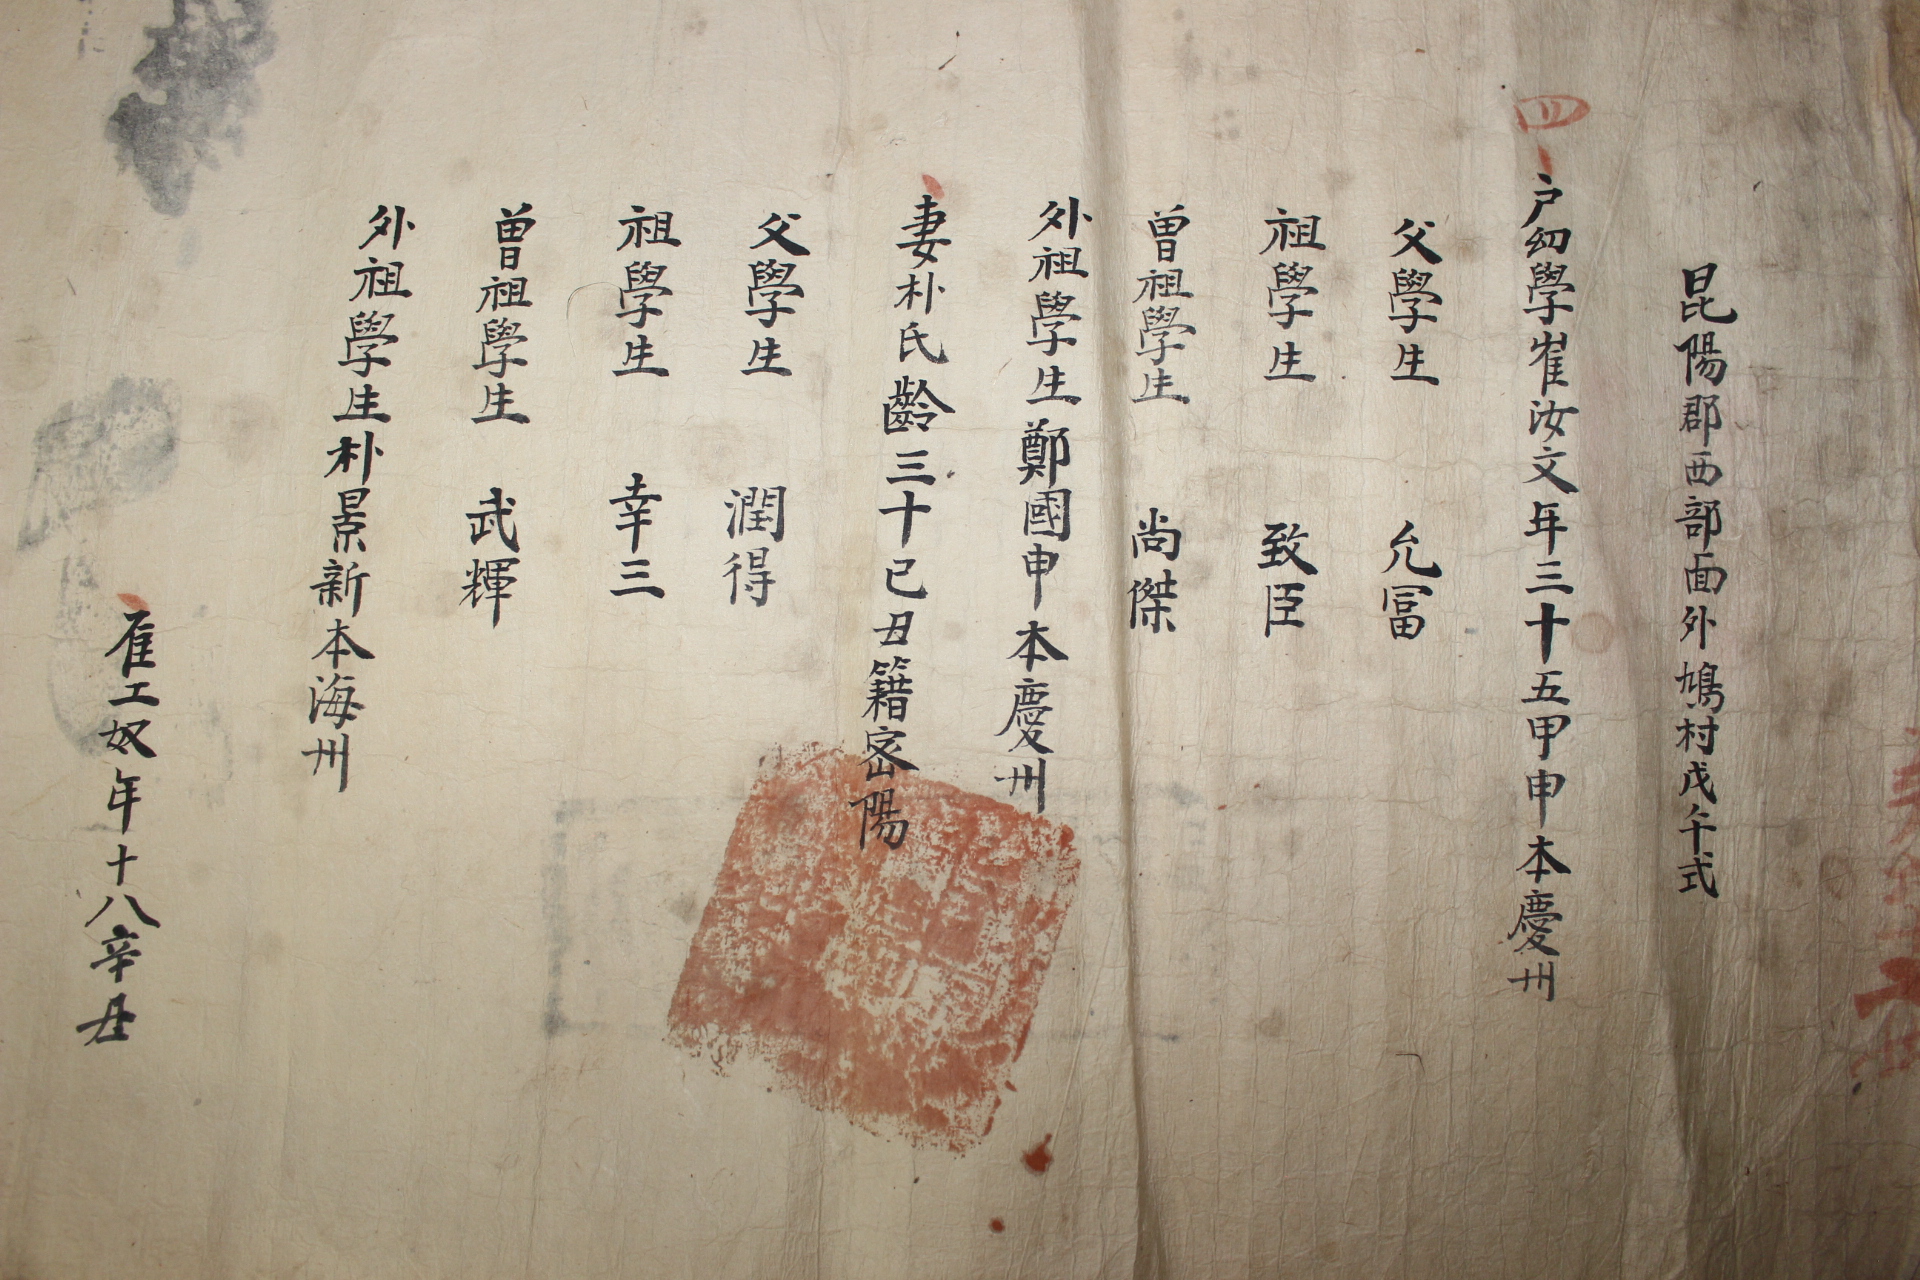 昆陽郡西部面外鳩村戊午式
四
戶幼學崔汝文年三十五甲申本慶州
父學生 允冨
祖學生 致臣
曽祖學生 尚傑
外祖學生鄭國申本慶州
妻朴氏齡三十己丑籍密陽
父學生 潤得
祖學生 幸三
曽祖學生 武輝
外祖學生朴景新本海州
雇工奴年十八辛丑